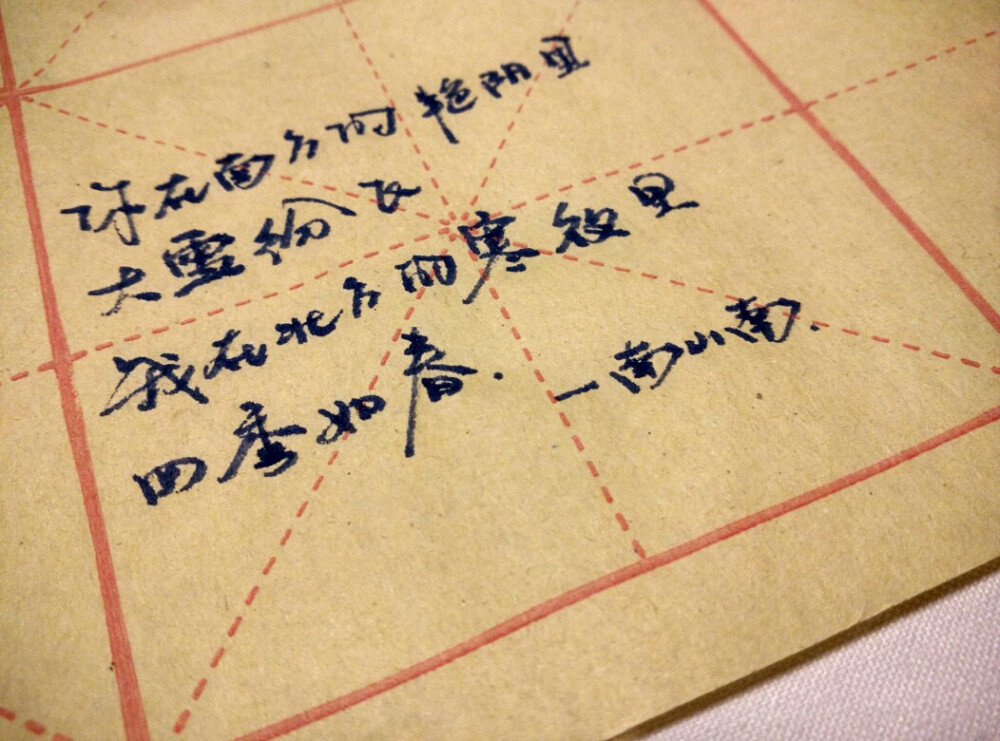 你在南方的艳阳里
大雪纷飞
我在北方的寒夜里
四季如春. —南山南.